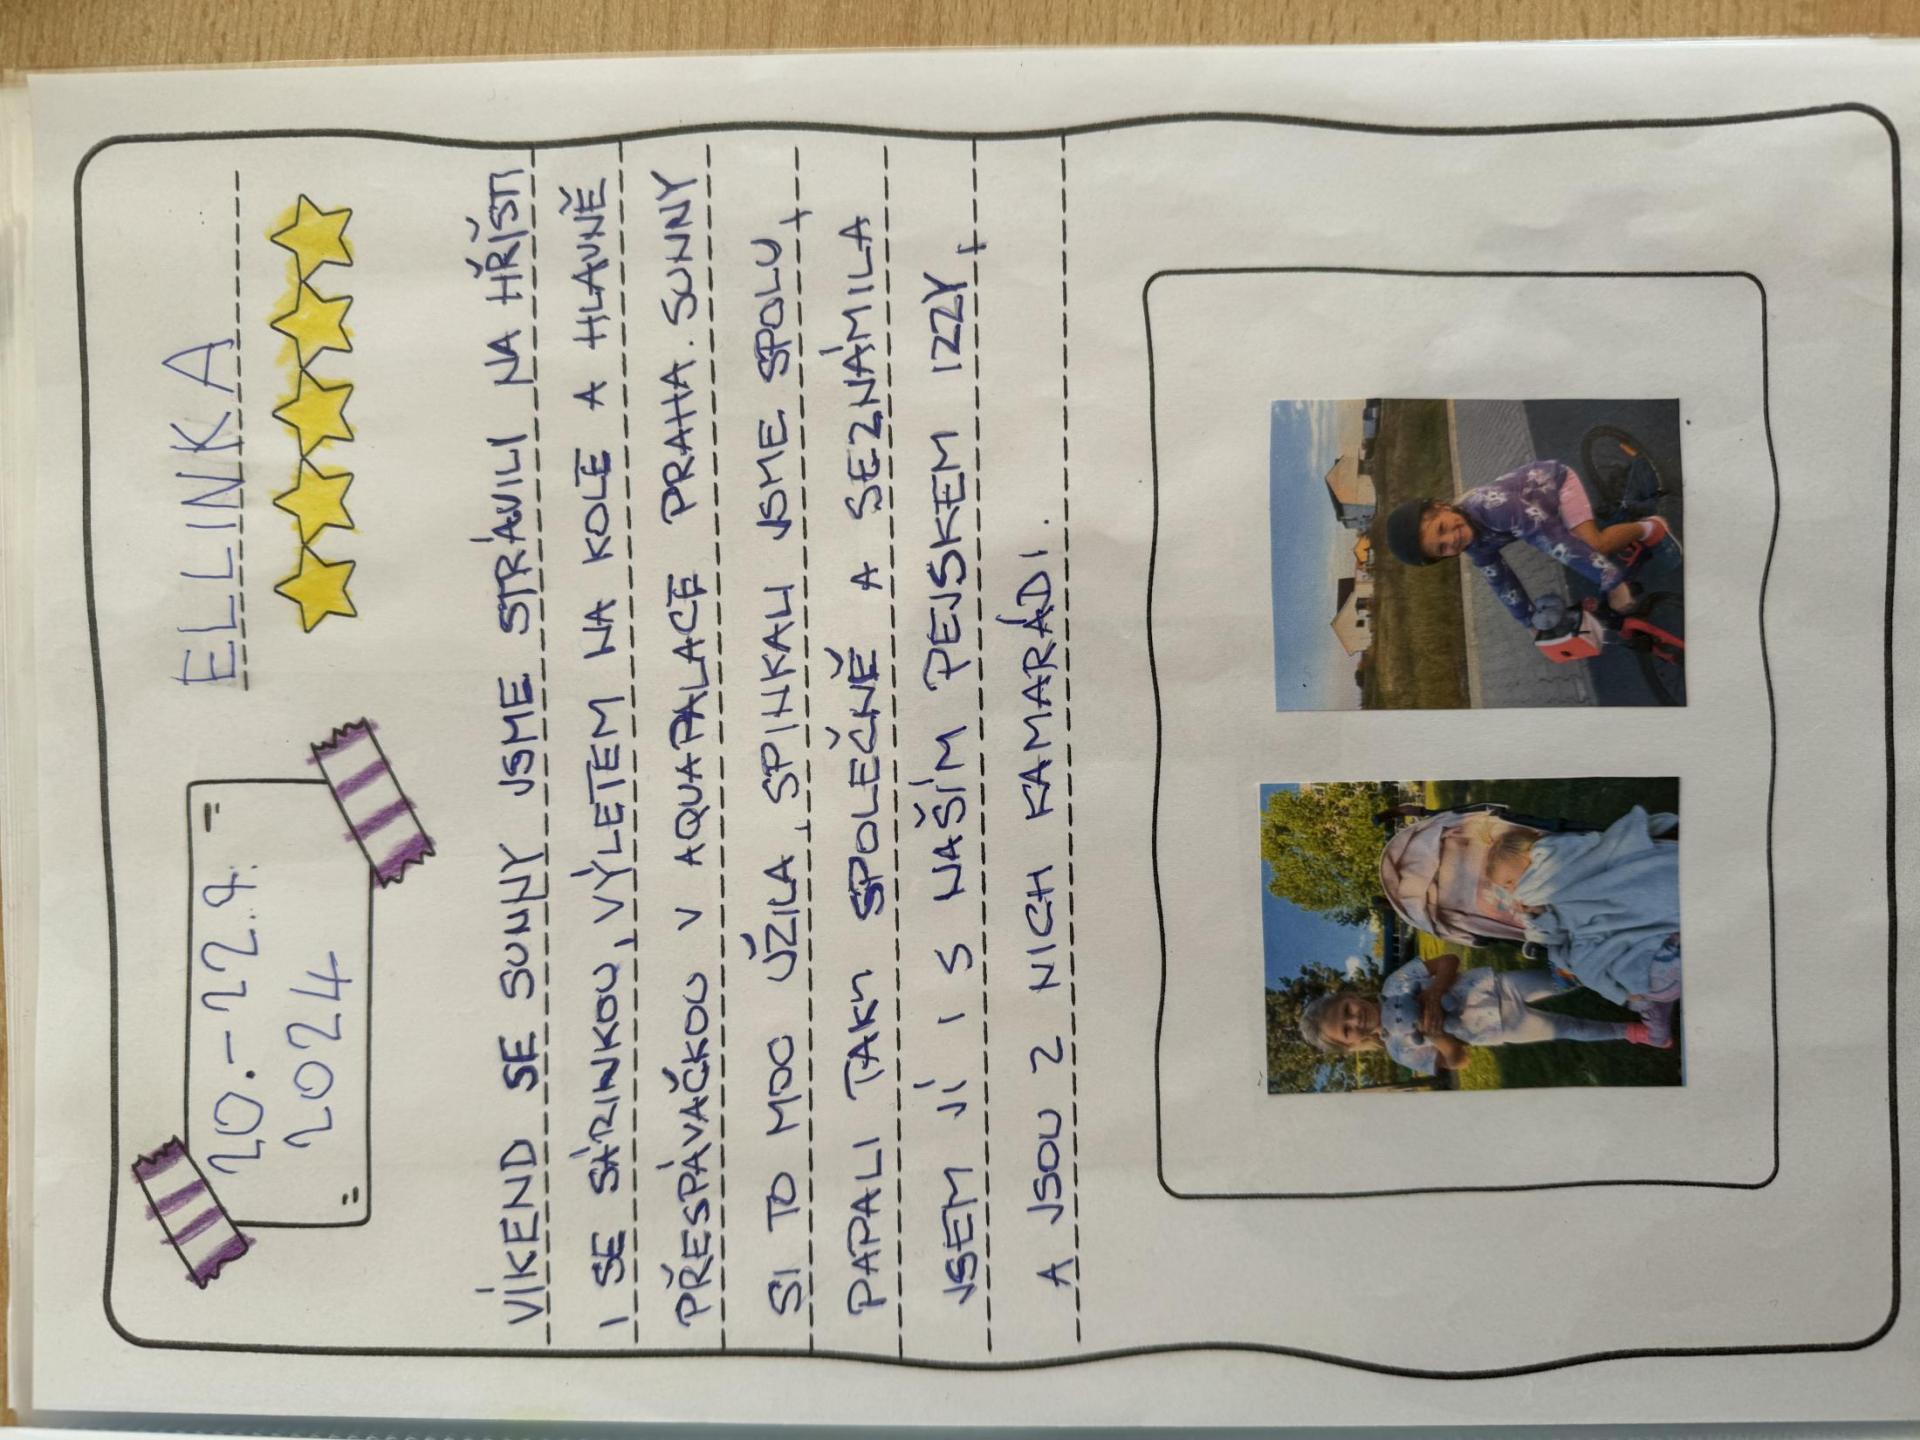 20.-22.9.
2024
ELLINKA
VÍKEND SE SUNNY JSME STRÁVILI NA HŘIŠTI
I SE SÁRINKOU, VÝLETEM NA KOLE A HLAVNĚ
PŘESPÁVAČKOU V AQUAPALACE PRAHA. SUNNY
SI TO MOC UŽILA, SPINKALI JSME SPOLU,
PAPALI TAKY SPOLEČNĚ A SEZNÁMILA
JSEM JÍ I S NAŠÍM PEJSKEM IZZY,
A JSOU Z NICH KAMARÁDI.